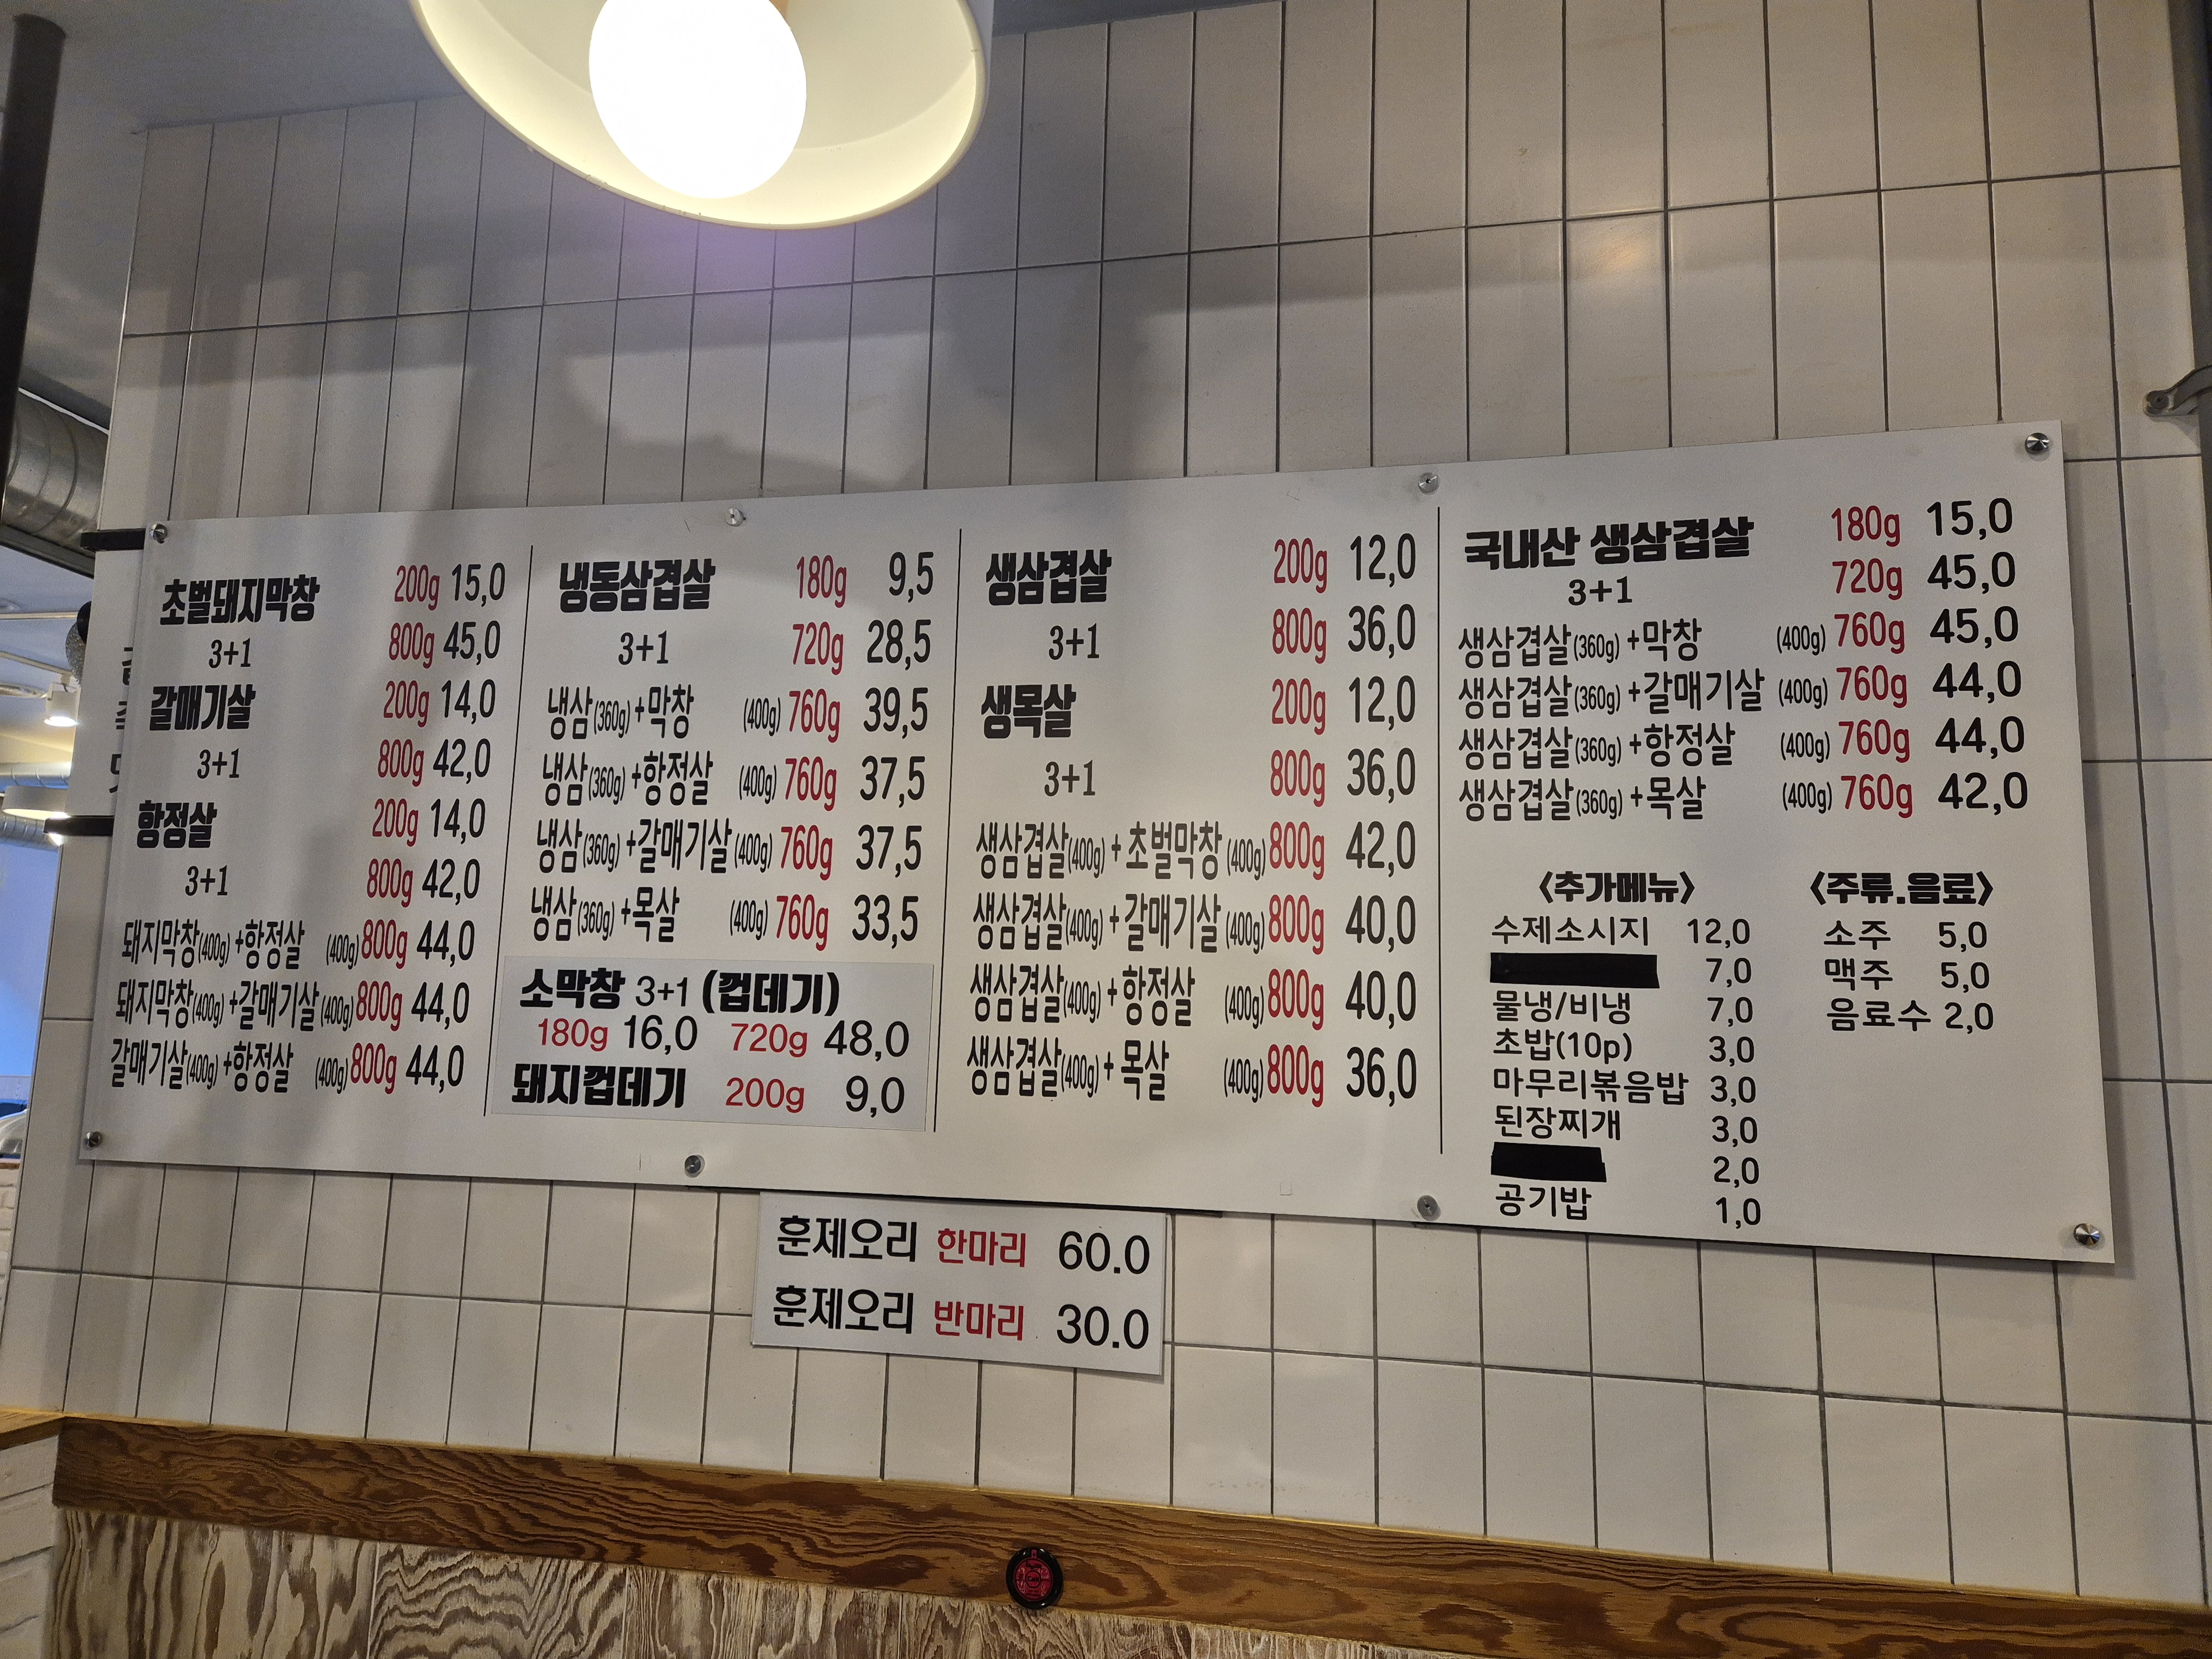 초벌돼지막창 200g 15,0
3+1 800g 45,0
갈매기살 200g 14,0
3+1 800g 42,0
항정살 200g 14,0
3+1 800g 42,0
돼지막창(400g)+항정살 (400g) 800g 44,0
돼지막창(400g)+갈매기살(400g) 800g 44,0
갈매기살(400g)+항정살 (400g) 800g 44,0
냉동삼겹살 180g 9,5
3+1 720g 28,5
냉삼(360g)+막창 (400g) 760g 39,5
냉삼(360g)+항정살 (400g) 760g 37,5
냉삼(360g)+갈매기살(400g) 760g 37,5
냉삼(360g)+목살 (400g) 760g 33,5
소막창 3+1 (껍데기)
180g 16,0 720g 48,0
돼지껍데기 200g 9,0
생삼겹살 200g 12,0
3+1 800g 36,0
생목살 200g 12,0
3+1 800g 36,0
생삼겹살(400g)+초벌막창(400g) 800g 42,0
생삼겹살(400g)+갈매기살(400g) 800g 40,0
생삼겹살(400g)+항정살 (400g) 800g 40,0
생삼겹살(400g)+목살 (400g) 800g 36,0
국내산 생삼겹살 180g 15,0
3+1 720g 45,0
생삼겹살(360g)+막창 (400g) 760g 45,0
생삼겹살(360g)+갈매기살 (400g) 760g 44,0
생삼겹살(360g)+항정살 (400g) 760g 44,0
생삼겹살(360g)+목살 (400g) 760g 42,0
<추가메뉴>
수제소시지 12,0
7,0
물냉/비냉 7,0
초밥(10p) 3,0
마무리볶음밥 3,0
된장찌개 3,0
2,0
공기밥 1,0
<주류.음료>
소주 5,0
맥주 5,0
음료수 2,0
훈제오리 한마리 60.0
훈제오리 반마리 30.0